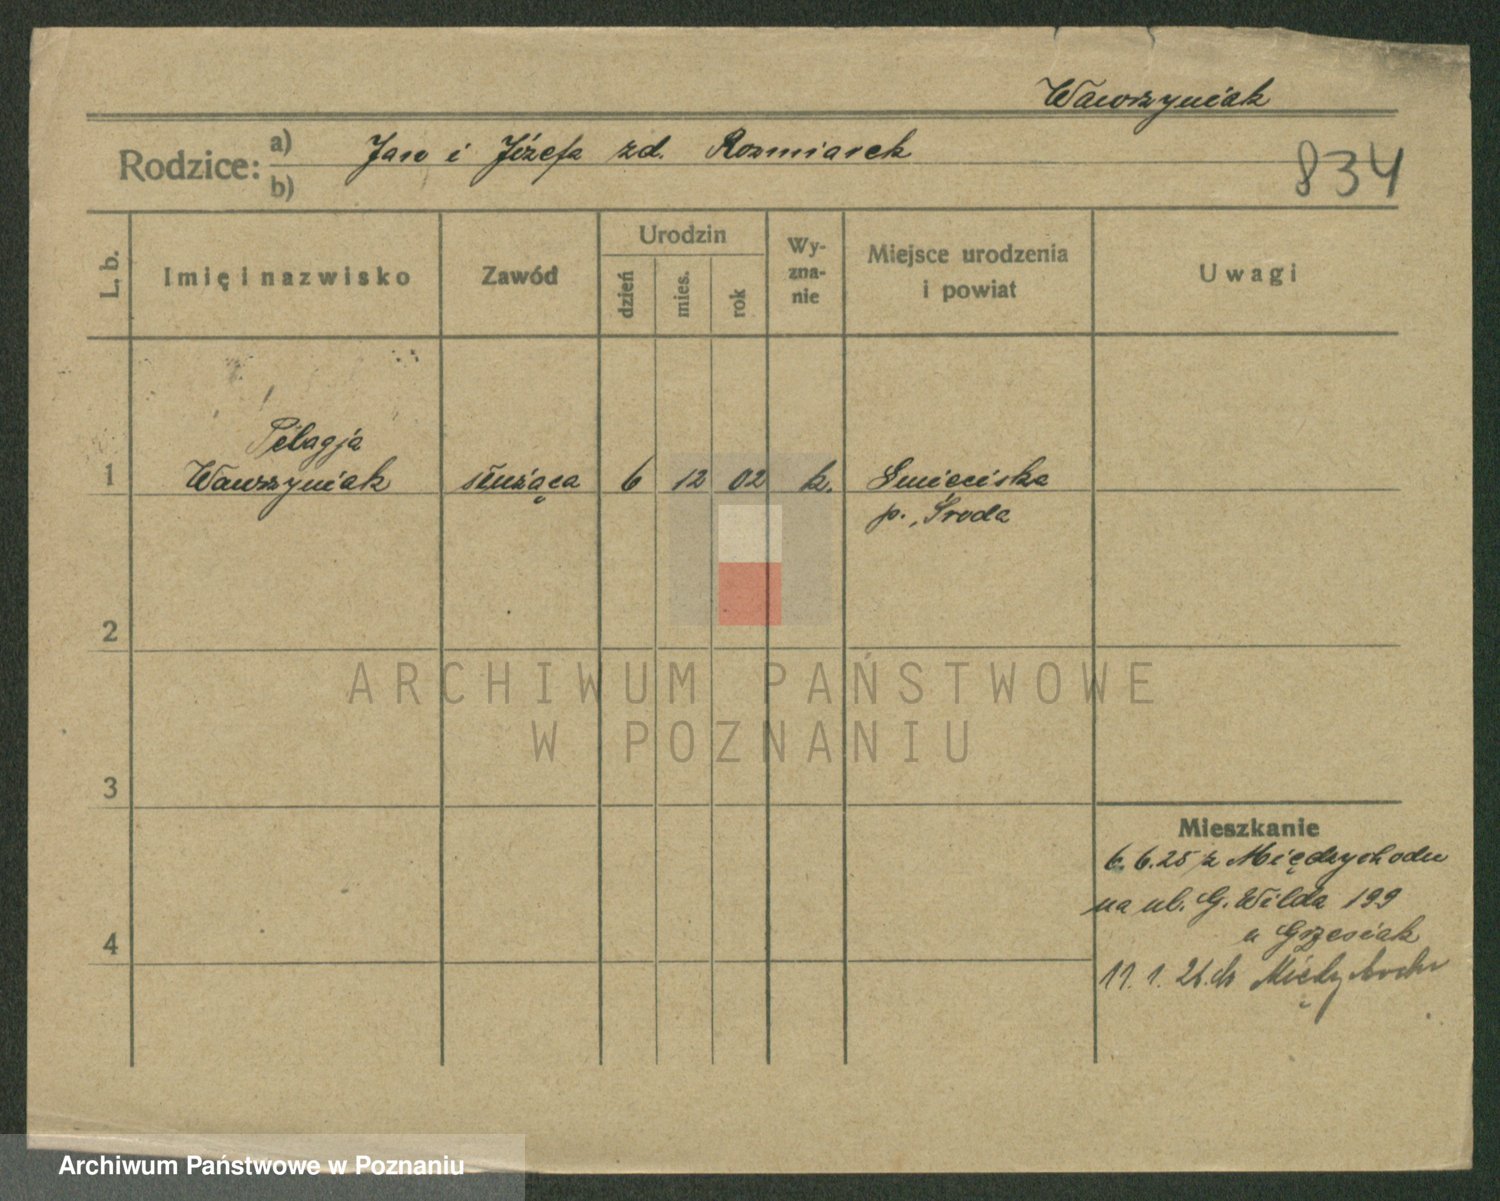 Wawrzyniak
Rodzice: a) Jan i Józefa zd. Rozmiarek
b)
834
L. b.
Imię i nazwisko
Zawód
Urodzin
dzień
mies.
rok
Wy-
zna-
nie
Miejsce urodzenia
i powiat
Uwagi
Pelagja
1 Wawrzyniak służąca 6 12 02 k. Śnieciska
p. Środa
2
ARCHIWUM PAŃSTWOWE
W POZNANIU
3
Mieszkanie
6.6.25 z Międzychodu
na ul. G. Wilda 199
u Grzesiak
4
11. 1. 26. do
Archiwum Państwowe w Poznaniu